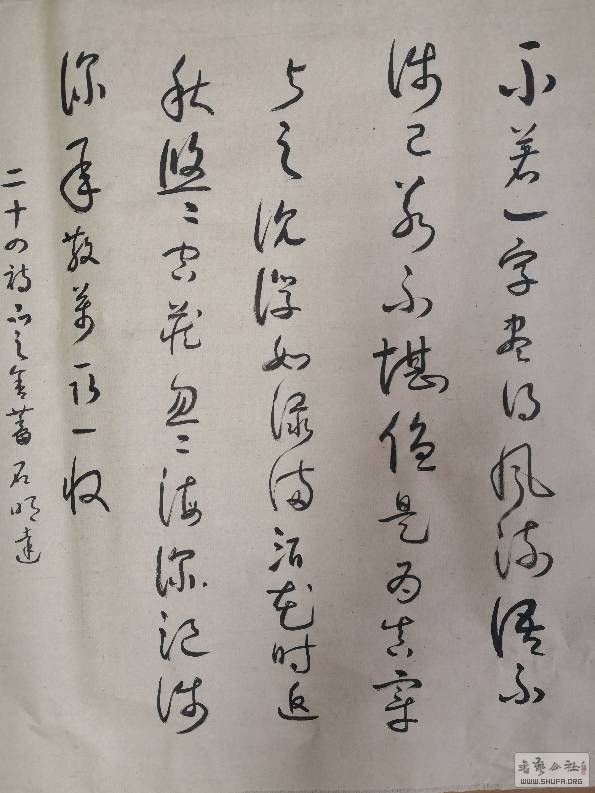 不着一字尽得风流语不
涉己若不堪是为真宰
与之沈浮如渌满酒花时返
秋悠〻空忽〻海深
深聚散萬取一收
二十四诗品之含蓄 石明達
书艺公社
WWW.SHUFA.ORG